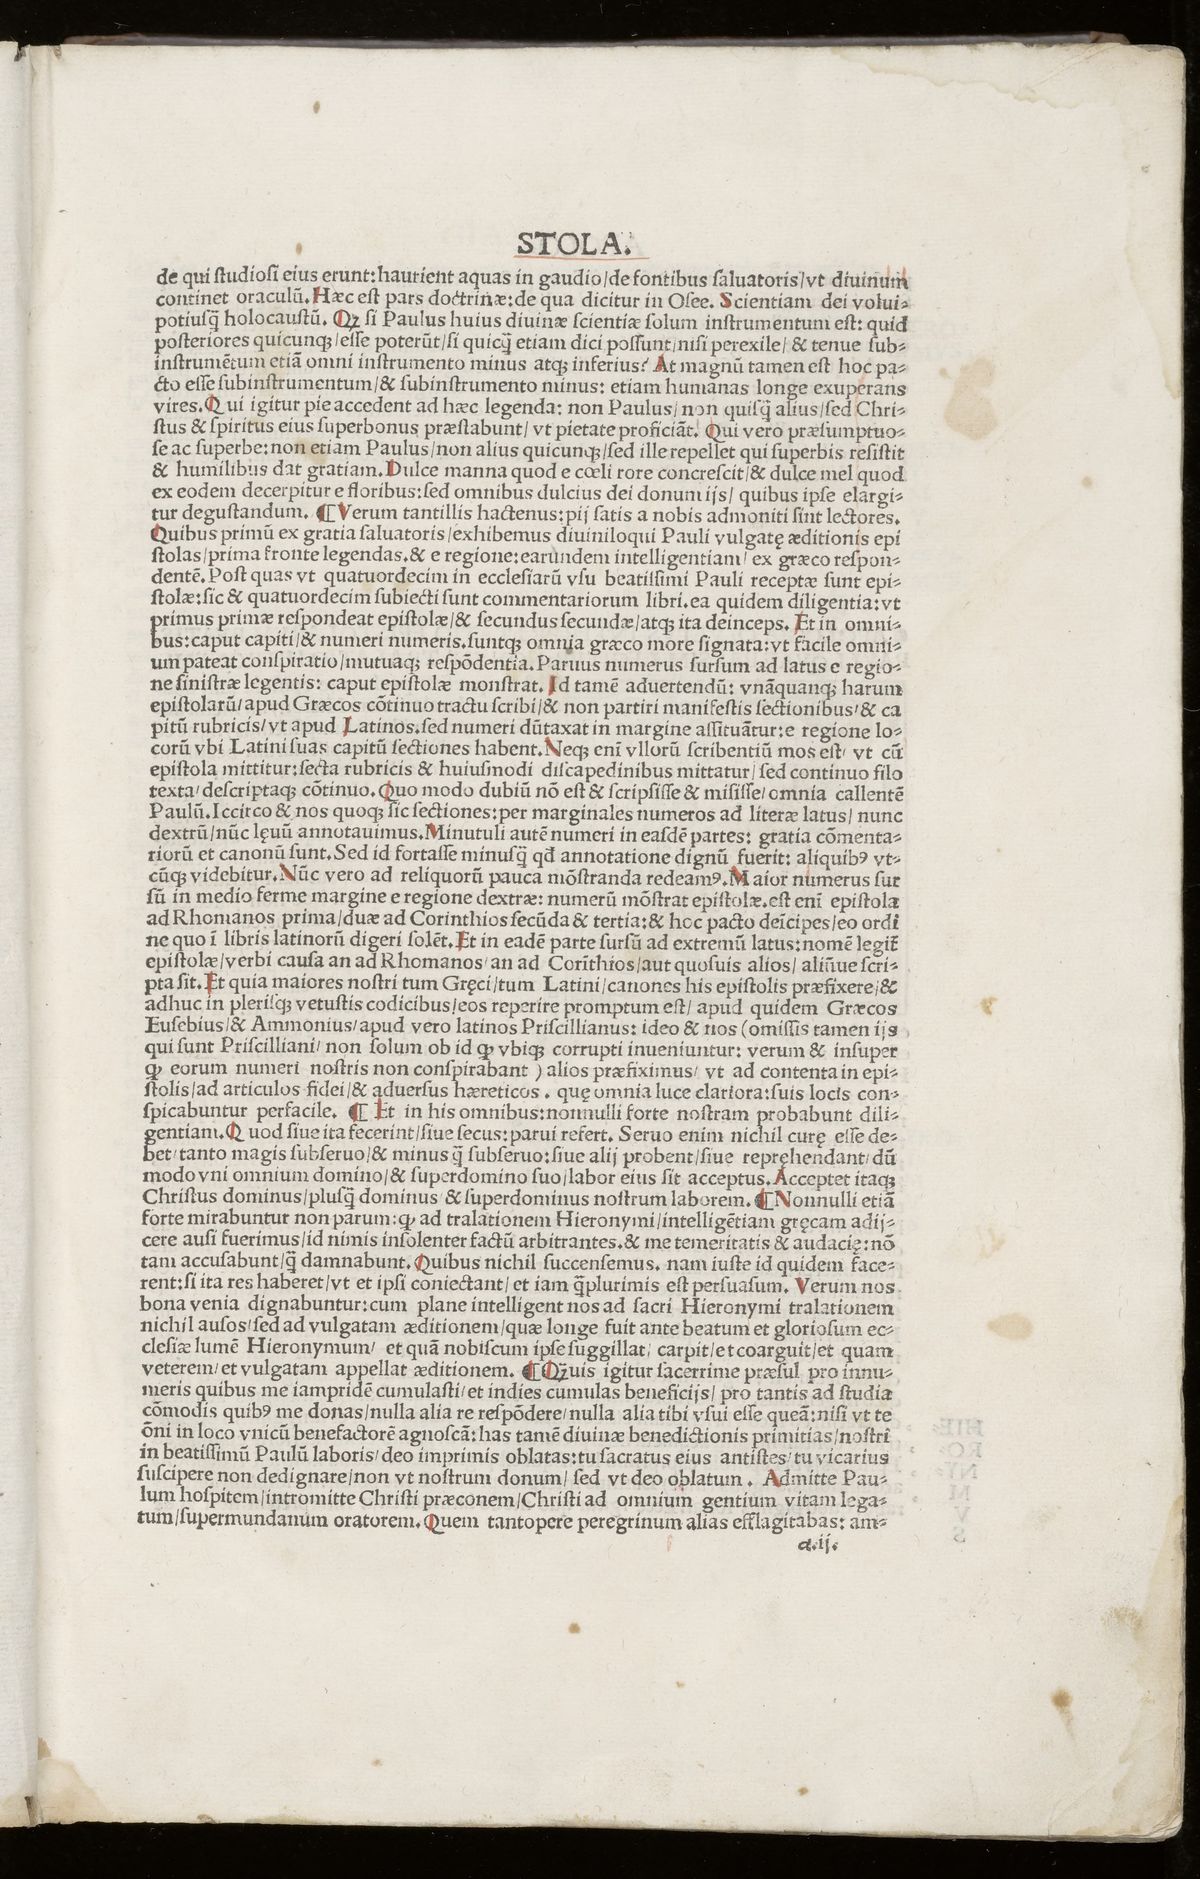 STOLA.
de qui ſtudioſi eius erunt: haurient aquas in gaudio/de fontibus ſaluatoris/vt diuinum
continet oraculū. Hæc eſt pars doctrinæ: de qua dicitur in Oſee. Scientiam dei volui⸗
potiuſq̄ holocauſtū. Qꝫ ſi Paulus huius diuinæ ſcientiæ ſolum inſtrumentum eſt: quid
poſteriores quicunqꝫ/eſſe poterūt/ſi quicq̄ etiam dici poſſunt/niſi perexile/& tenue ſub⸗
inſtrumētum etiā omni inſtrumento minus atqꝫ inferius? At magnū tamen eſt hoc pa⸗
cto eſſe ſubinſtrumentum/& ſubinſtrumento minus: etiam humanas longe exuperans
vires. Qui igitur pie accedent ad hæc legenda: non Paulus/non quiſq̄ alius/ſed Chri⸗
ſtus & ſpiritus eius ſuperbonus præſtabunt/vt pietate proficiāt. Qui vero præſumptuo⸗
ſe ac ſuperbe: non etiam Paulus/non alius quicunqꝫ/ſed ille repellet qui ſuperbis reſiſtit
& humilibus dat gratiam. Dulce manna quod e cœli rore concreſcit/& dulce mel quod
ex eodem decerpitur e floribus: ſed omnibus dulcius dei donum ijs/ quibus ipſe elargi⸗
tur deguſtandum. ¶ Verum tantillis hactenus: pij ſatis a nobis admoniti ſint lectores.
Quibus primū ex gratia ſaluatoris/exhibemus diuiniloqui Pauli vulgatę æditionis epi
ſtolas/prima fronte legendas. & e regione: earundem intelligentiam/ ex græco reſpon⸗
dentē. Poſt quas vt quatuordecim in eccleſiarū vſu beatiſſimi Pauli receptæ ſunt epi⸗
ſtolæ: ſic & quatuordecim ſubiecti ſunt commentariorum libri. ea quidem diligentia: vt
primus primæ reſpondeat epiſtolæ/& ſecundus ſecundæ/atqꝫ ita deinceps. Et in omni⸗
bus: caput capiti/& numeri numeris. ſuntqꝫ omnia græco more ſignata: vt facile omni⸗
um pateat conſpiratio/mutuaqꝫ reſpōdentia. Paruus numerus ſurſum ad latus e regio⸗
ne ſiniſtræ legentis: caput epiſtolæ monſtrat. Id tamē aduertendū: vnāquanqꝫ harum
epiſtolarū/apud Græcos cōtinuo tractu ſcribi/& non partiri manifeſtis ſectionibus/& ca
pitū rubricis/vt apud Latinos. ſed numeri dūtaxat in margine aſſituātur: e regione lo⸗
corū vbi Latini ſuas capitū ſectiones habent. Neqꝫ enī vllorū ſcribentiū mos eſt/ vt cū
epiſtola mittitur: ſecta rubricis & huiuſmodi diſcapedinibus mittatur/ſed continuo filo
texta/deſcriptaqꝫ cōtinuo. Quo modo dubiū nō eſt & ſcripſiſſe & miſiſſe/omnia callentē
Paulū. Iccirco & nos quoqꝫ ſic ſectiones: per marginales numeros ad literæ latus/ nunc
dextrū/nūc lęuū annotauimus. Minutuli autē numeri in eaſdē partes: gratia cōmenta⸗
riorū et canonū ſunt. Sed id fortaſſe minuſq̄ qđ annotatione dignū fuerit: aliquibꝰ vt⸗
cūqꝫ videbitur. Nūc vero ad reliquorū pauca mōſtranda redeamꝰ. Maior numerus ſur
ſū in medio ferme margine e regione dextræ: numerū mōſtrat epiſtolæ. eſt enī epiſtola
ad Rhomanos prima/duæ ad Corinthios ſecūda & tertia: & hoc pacto deīcipes/eo ordi
ne quo ī libris latinorū digeri ſolēt. Et in eadē parte ſurſū ad extremū latus: nomē legit̄
epiſtolæ/verbi cauſa an ad Rhomanos/an ad Corīthios/aut quoſuis alios/ aliūue ſcri⸗
pta ſit. Et quia maiores noſtri tum Gręci/tum Latini/canones his epiſtolis præfixere/&
adhuc in pleriſqꝫ vetuſtis codicibus/eos reperire promptum eſt/ apud quidem Græcos
Euſebius/& Ammonius/apud vero latinos Priſcillianus: ideo & nos (omiſſis tamen ijs
qui ſunt Priſcilliani/ non ſolum ob id ꝙ vbiqꝫ corrupti inueniuntur: verum & inſuper
ꝙ eorum numeri noſtris non conſpirabant) alios præfiximus/ vt ad contenta in epi⸗
ſtolis/ad articulos fidei/& aduerſus hæreticos. quę omnia luce clariora: ſuis locis con⸗
ſpicabuntur perfacile. ¶ Et in his omnibus: nonnulli forte noſtram probabunt dili⸗
gentiam. Quod ſiue ita fecerint/ſiue ſecus: parui refert. Seruo enim nichil curę eſſe de⸗
bet/tanto magis ſubſeruo/& minus q̄ ſubſeruo: ſiue alij probent/ſiue repręhendant/dū
modo vni omnium domino/& ſuperdomino ſuo/labor eius ſit acceptus. Acceptet itaqꝫ
Chriſtus dominus/pluſq̄ dominus & ſuperdominus noſtrum laborem. ¶ Nonnulli etiā
forte mirabuntur non parum: ꝙ ad tralationem Hieronymi/intelligētiam gręcam adij⸗
cere auſi fuerimus/id nimis inſolenter factū arbitrantes. & me temeritatis & audacię: nō
tam accuſabunt/q̄ damnabunt. Quibus nichil ſuccenſemus. nam iuſte id quidem face⸗
rent: ſi ita res haberet/vt et ipſi coniectant/ et iam q̄plurimis eſt perſuaſum. Verum nos
bona venia dignabuntur: cum plane intelligent nos ad ſacri Hieronymi tralationem
nichil auſos/ſed ad vulgatam æditionem/quæ longe fuit ante beatum et glorioſum ec⸗
cleſiæ lumē Hieronymum/ et quā nobiſcum ipſe ſuggillat/ carpit/et coarguit/et quam
veterem/et vulgatam appellat æditionem. ¶ Qꝫuis igitur ſacerrime præſul pro innu⸗
meris quibus me iampridē cumulaſti/et indies cumulas beneficijs/ pro tantis ad ſtudia
cōmodis quibꝰ me donas/nulla alia re reſpōdere/nulla alia tibi vſui eſſe queā: niſi vt te
ōni in loco vnicū benefactorē agnoſcā: has tamē diuinæ benedictionis primitias/noſtri
in beatiſſimū Paulū laboris/deo imprimis oblatas: tu ſacratus eius antiſtes/tu vicarius
ſuſcipere non dedignare/non vt noſtrum donum/ ſed vt deo oblatum. Admitte Pau⸗
lum hoſpitem/intromitte Chriſti præconem/Chriſti ad omnium gentium vitam lega⸗
tum/ſupermundanum oratorem. Quem tantopere peregrinum alias efflagitabas: am⸗
a.ij.